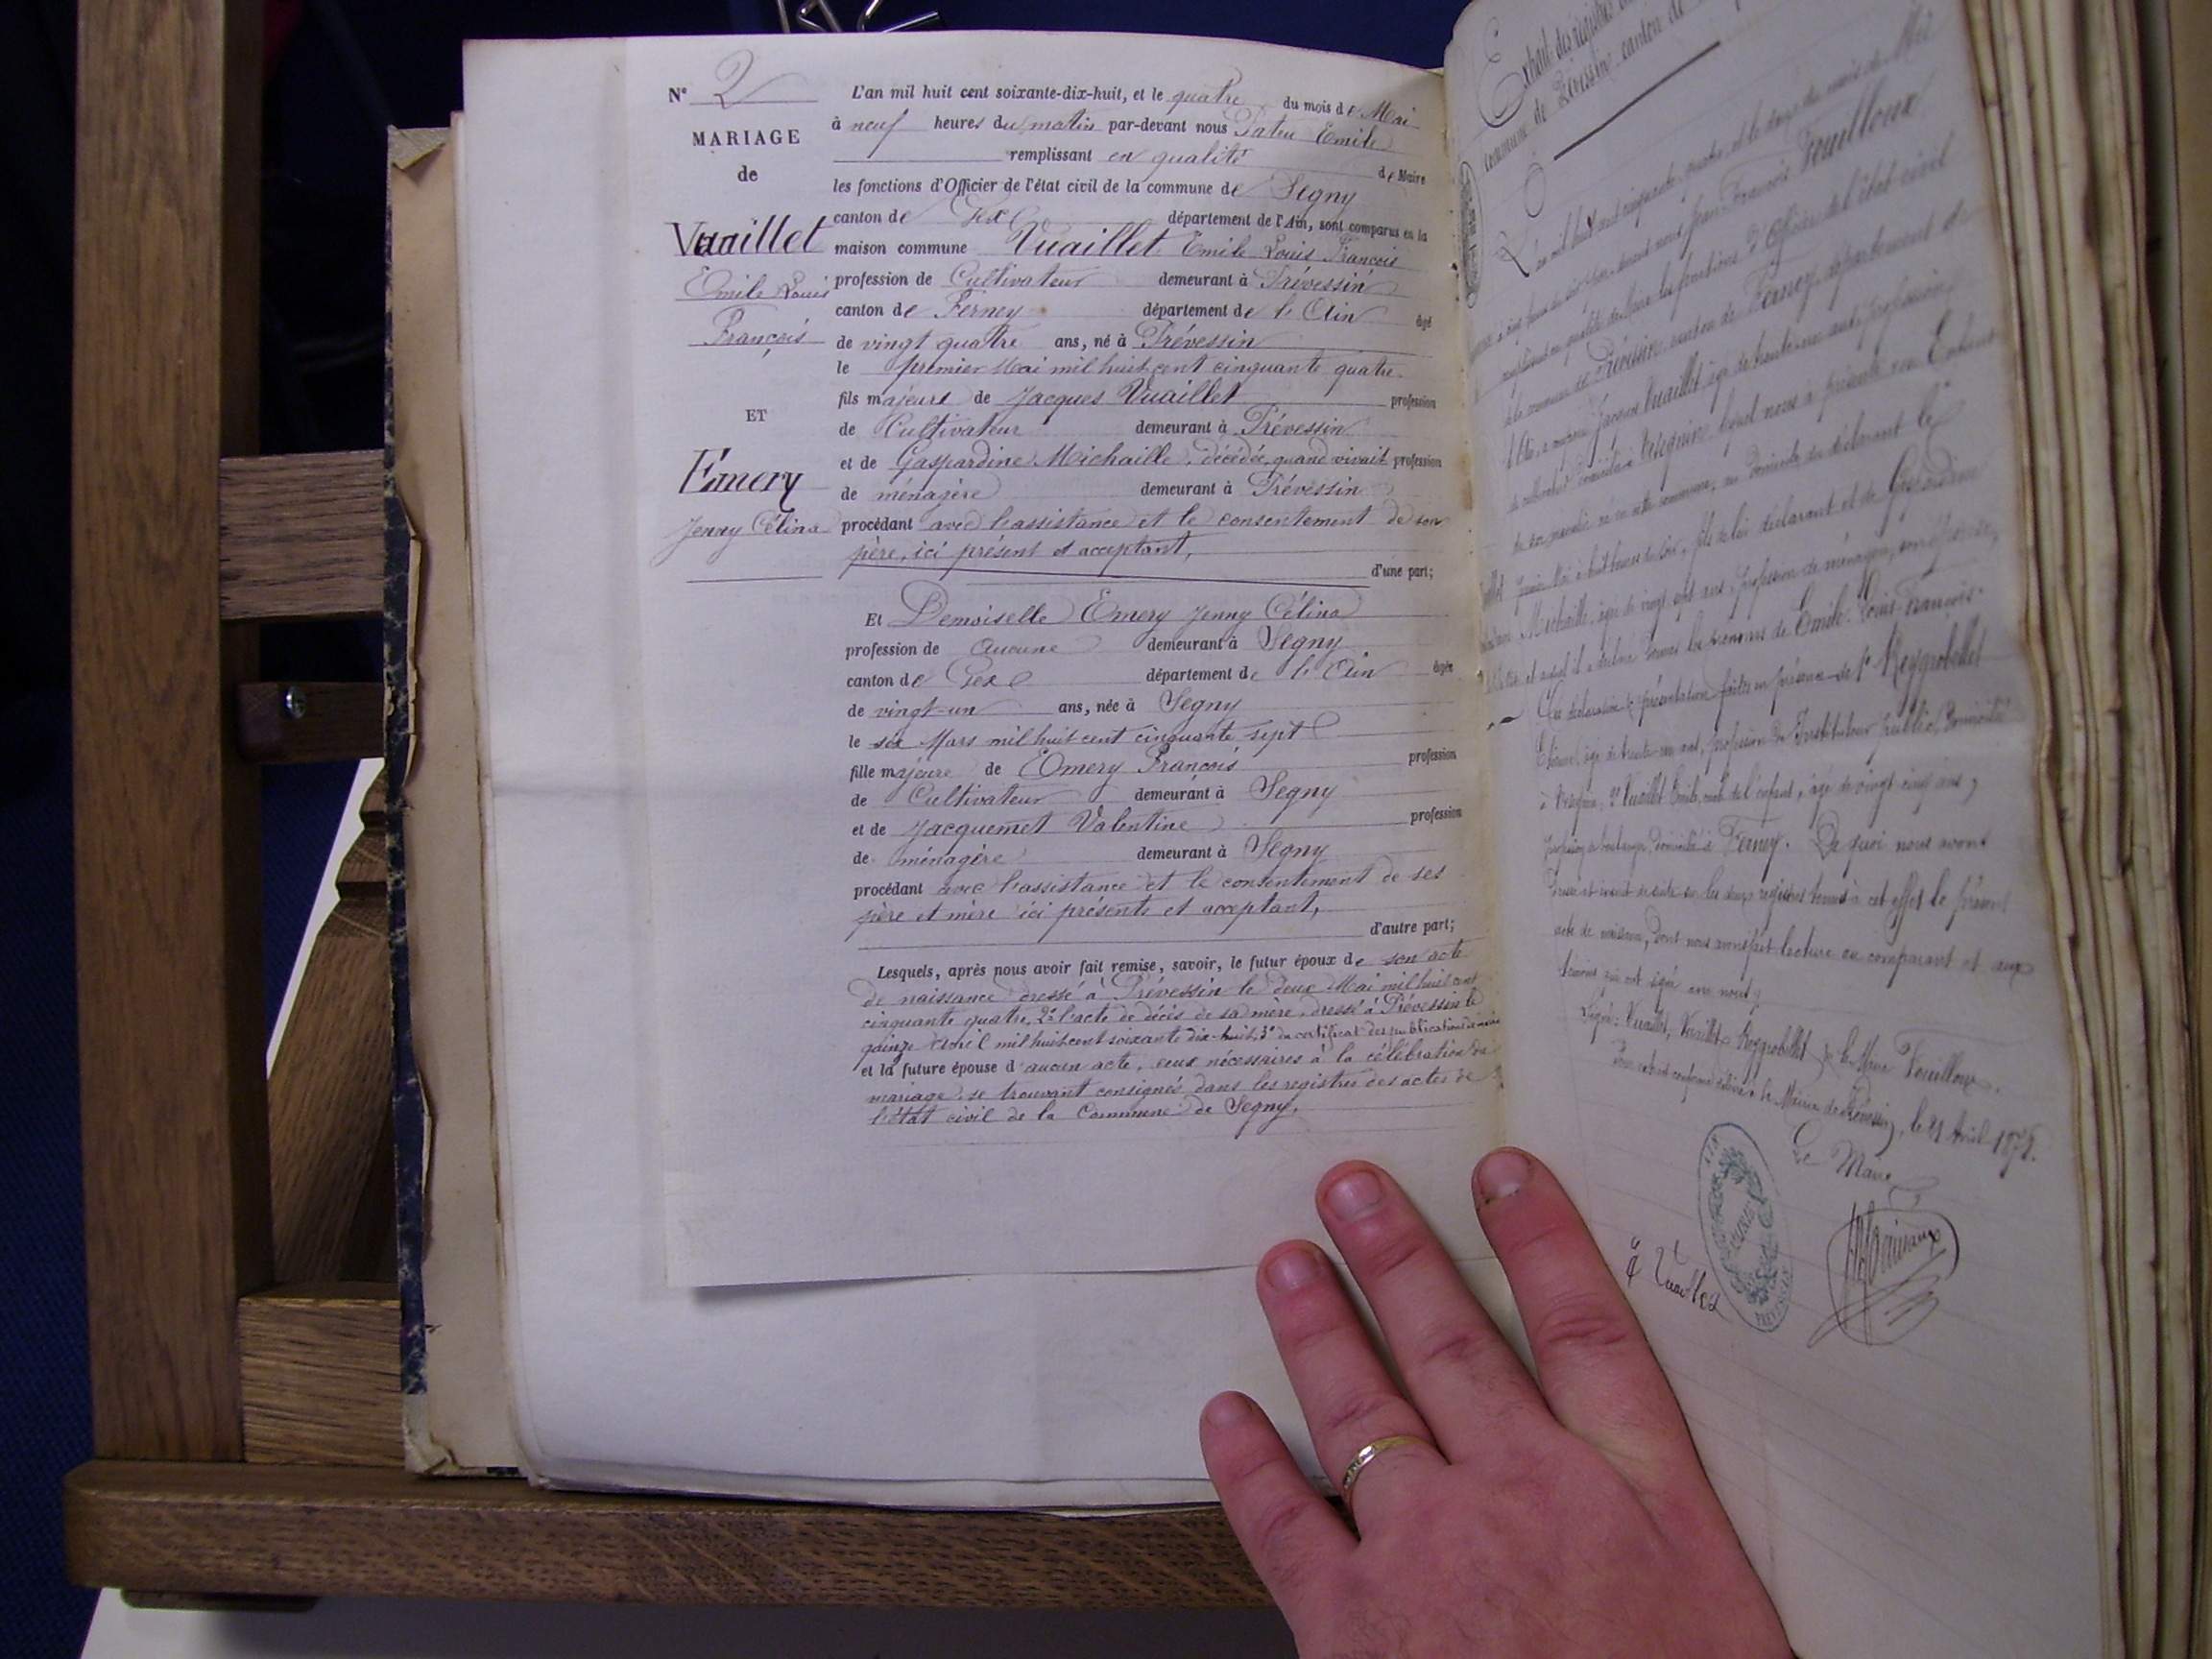 N° 2
MARIAGE
de
Vuaillet
Emile Louis
François
ET
Emery
Jenny Célina
L'an mil huit cent soixante-dix-huit, et le quatre du mois de Mai
à neuf heures du matin par-devant nous Emile
remplissant en qualité de Maire
les fonctions d'Officier de l'état civil de la commune de Segny
canton de Gex département de l'Ain, sont comparus en la
maison commune Vuaillet Emile Louis François
profession de Cultivateur demeurant à Prévessin
canton de Ferney département de l'Ain âgé
de vingt quatre ans, né à Prévessin
le premier Mai mil huit cent cinquante quatre.
fils majeur de Jacques Vuaillet profession
de Cultivateur demeurant à Prévessin
et de Gaspardine Michaille, décédée, quand vivait profession
de ménagère demeurant à Prévessin
procédant avec l'assistance et le consentement de son
père, ici présent et acceptant,
d'une part;
Et Demoiselle Emery Jenny Célina
profession de aucune demeurant à Segny
canton de Gex département de l'Ain âgée
de vingt-un ans, née à Segny
le six Mars mil huit cent cinquante sept
fille majeure de Emery François profession
de Cultivateur demeurant à Segny
et de Jacquemet Valentine profession
de ménagère demeurant à Segny
procédant avec l'assistance et le consentement de ses
père et mère ici présents et acceptant,
d'autre part;
Lesquels, après nous avoir fait remise, savoir, le futur époux de son acte
de naissance dressé à Prévessin le deux Mai mil huit cent
cinquante quatre, 2° l'acte de décès de sa mère, dressé à Prévessin le
quinze Avril mil huit cent soixante dix-huit, 3° du certificat des publications
et la future épouse d'aucun acte, ceux nécessaires à la célébration du
mariage se trouvant consignés dans les registres des actes de
l'état civil de la Commune de Segny.
Extrait des registres
commune de Prévessin canton de
L'an mil huit cent cinquante quatre, et le deux du mois de Mai
par devant nous Jean François Fouilloux
les fonctions d'Officier de l'état civil
de la commune de Prévessin canton de Ferney, département de
l'Ain, Jacques Vuaillet âgé de
lequel nous a présenté un Enfant
de sexe masculin né en cette commune, au domicile du déclarant le
premier Mai à huit heures du soir, fils de lui déclarant et de Gaspardine
Michaille, âgée de vingt sept ans, profession de ménagère, son épouse,
et auquel il a déclaré donner les prénoms de Emile Louis François.
Ces déclaration et présentation faites en présence de 1° Reygrobellet
âgé de trente un ans, profession de Instituteur public, domicilié
à Vésegnin, 2° Vuaillet Emile, oncle de l'enfant, âgé de vingt cinq ans,
profession de boulanger, domicilié à Ferney. De quoi nous avons
dressé et inscrit de suite sur les deux registres tenus à cet effet le présent
acte de naissance, dont nous avons fait lecture au comparant et aux
témoins qui ont signé avec nous,
Signé: Vuaillet, Vuaillet, Reygrobellet, le Maire Fouilloux.
Pour extrait conforme délivré à la Mairie de Prévessin, le 21 Avril 1878.
Le Maire
Vuaillet
AIN
MAIRIE
PRÉVESSIN